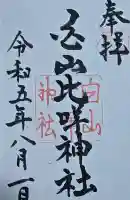 奉拝
白山比咩神社
白山
神社
令和五年八月一日